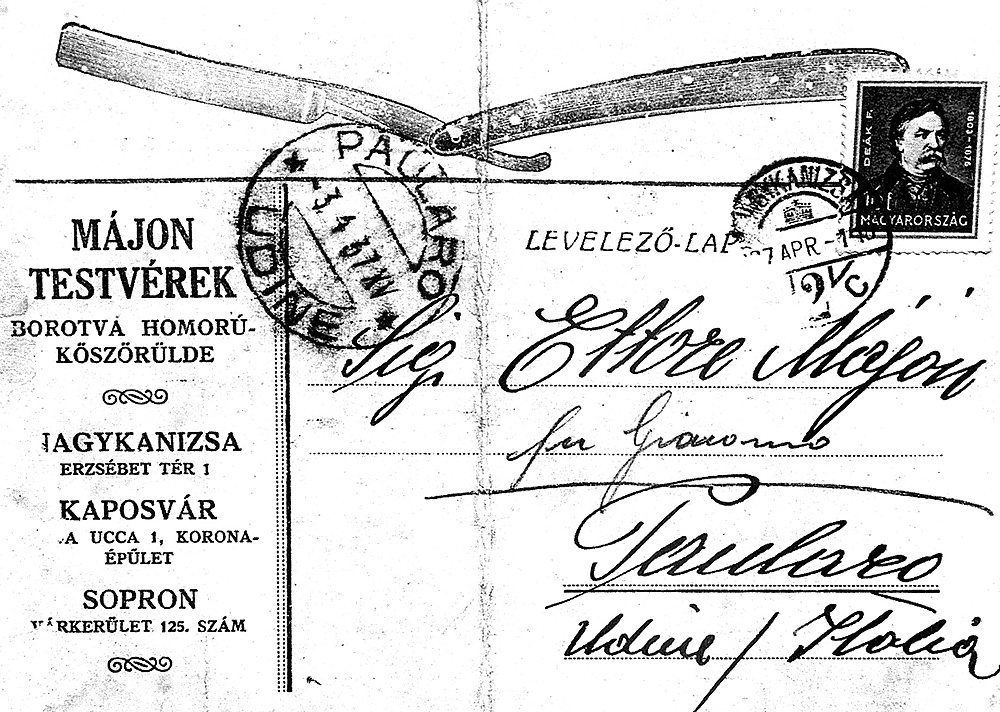 MÁJON
TESTVÉREK
BOROTVA HOMORÚ-
KŐSZÖRÜLDE
NAGYKANIZSA
ERZSÉBET TÉR 1
KAPOSVÁR
A UCCA 1, KORONA-
ÉPÜLET
SOPRON
VÁRKERÜLET 125. SZÁM
PAULARO
UDINE
-3.4.37 XV
LEVELEZŐ-LAP
NAGYKANIZSA
37 APR -1
DEÁK F.
1803-1876
MAGYARORSZÁG
Sig. Ettore Májon
fu Giacomo
Paularo
Udine / Itolia